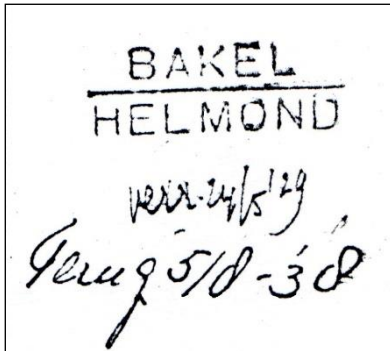 BAKEL
HELMOND
verr. 24/5 '29
Terug 5/8-38